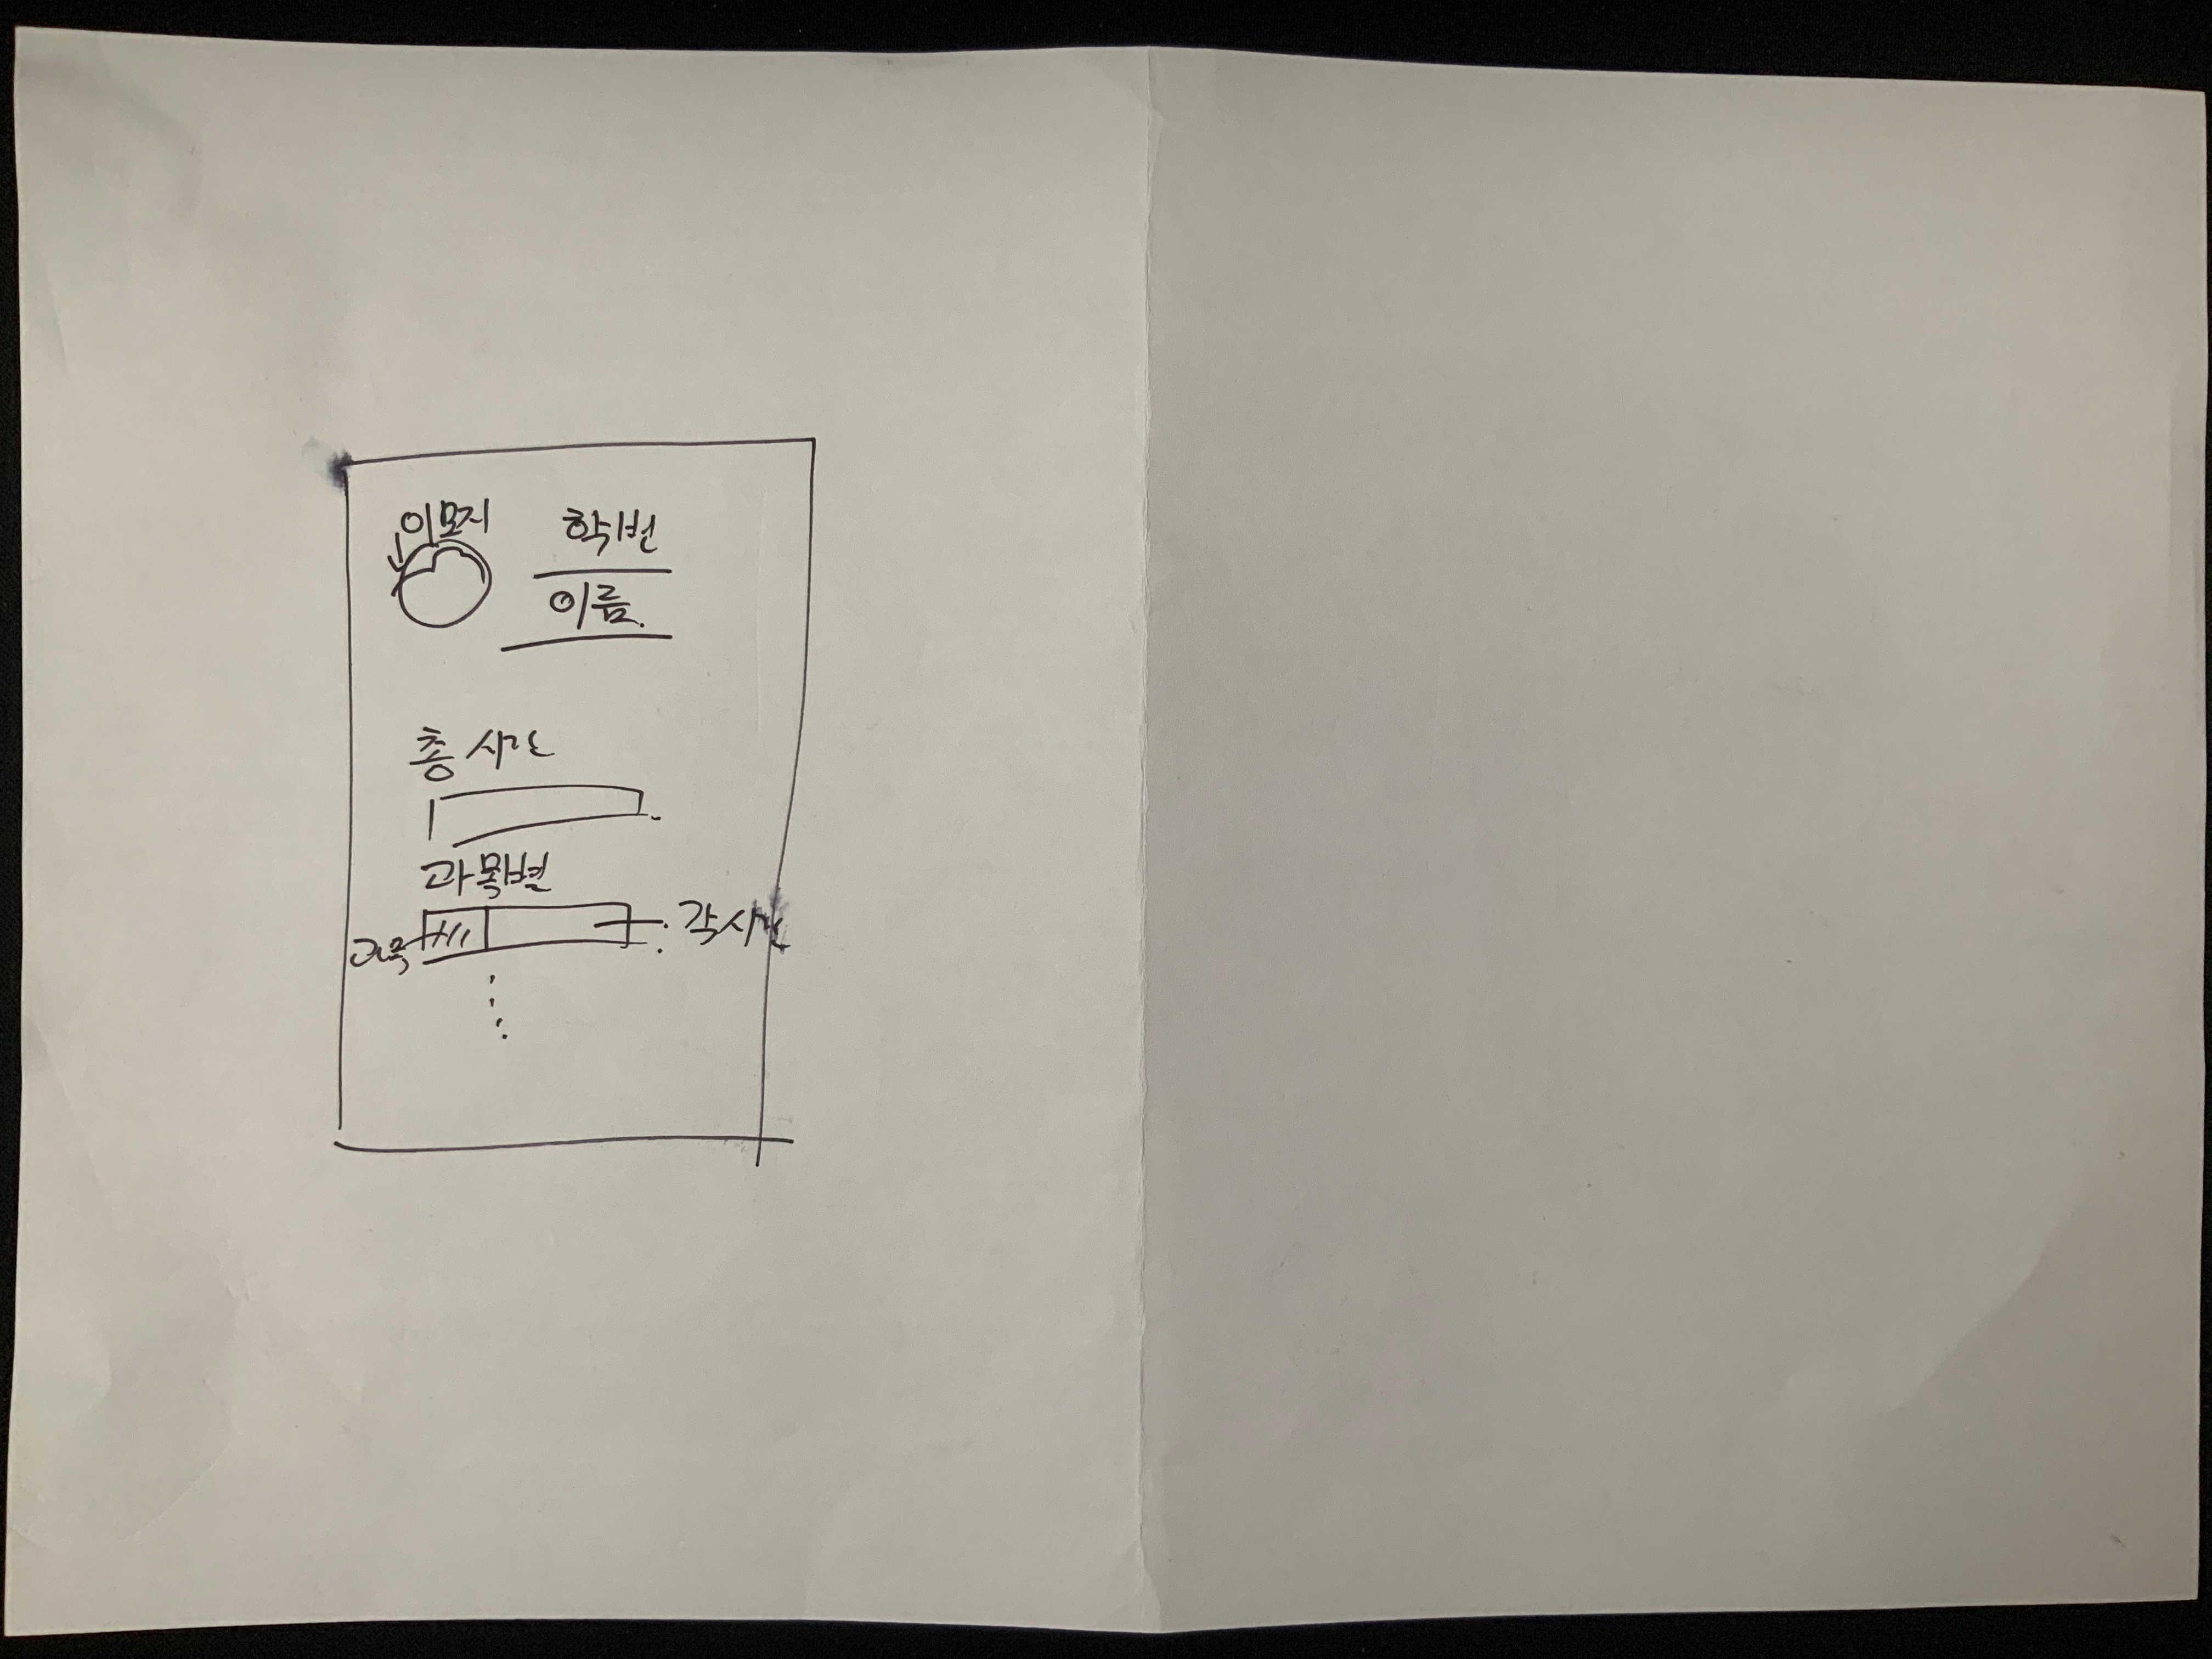 이모지
학번
이름.
총 시간
과목별
과목
각 시간